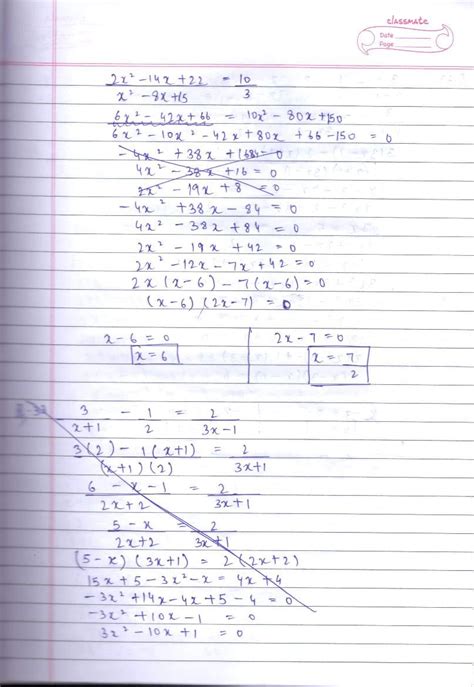 classmate
Date
Page
2x² - 14x + 22 / x² - 8x + 15 = 10 / 3
6x² - 42x + 66 = 10x² - 80x + 150
6x² - 10x² - 42x + 80x + 66 - 150 = 0
4x² - 38x + 16 = 0
2x² - 19x + 8 = 0
- 4x² + 38x - 84 = 0
4x² - 38x + 84 = 0
2x² - 19x + 42 = 0
2x² - 12x - 7x + 42 = 0
2x (x-6) - 7 (x-6) = 0
(x-6) (2x-7) = 0
x - 6 = 0 | 2x - 7 = 0
x = 6 | x = 7/2
3 / x+1 - 1 / 2 = 2 / 3x-1
3(2) - 1(x+1) / (x+1)(2) = 2 / 3x+1
6 - x - 1 / 2x+2 = 2 / 3x+1
5 - x / 2x+2 = 2 / 3x+1
(5-x) (3x+1) = 2(2x+2)
15x + 5 - 3x² - x = 4x + 4
-3x² + 14x - 4x + 5 - 4 = 0
-3x² + 10x - 1 = 0
3x² - 10x + 1 = 0